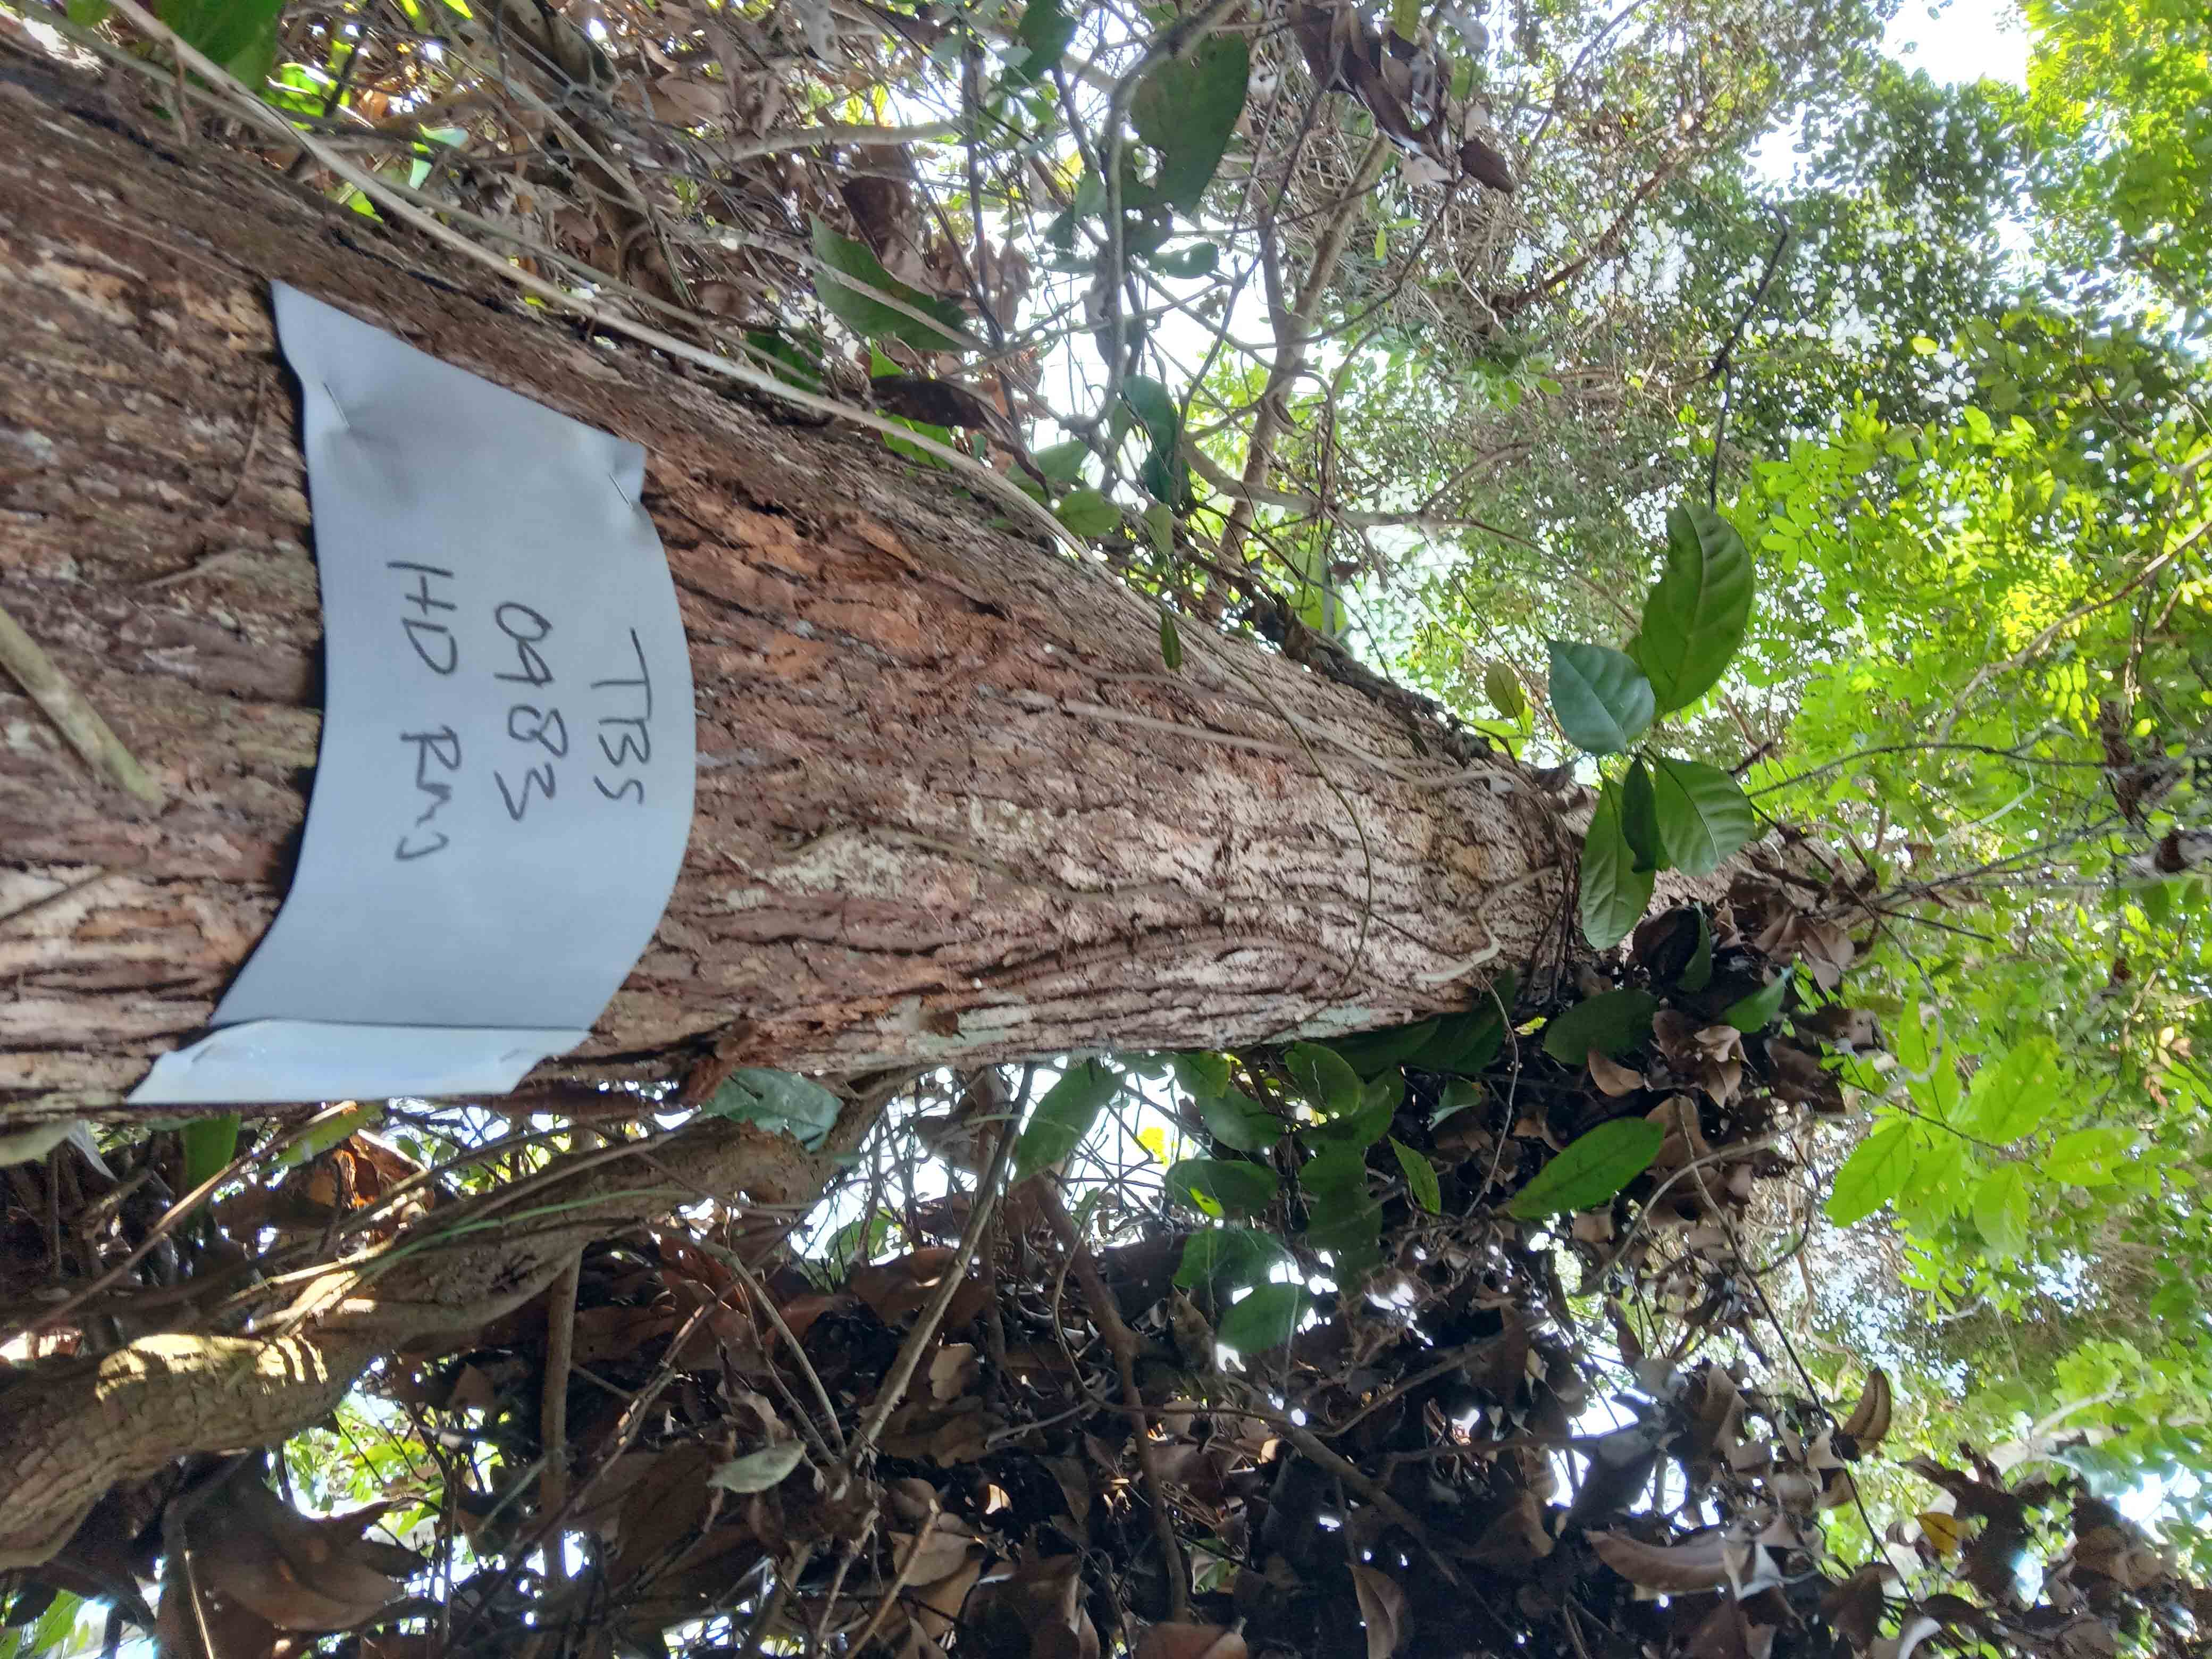 TBS
0983
HD Rms